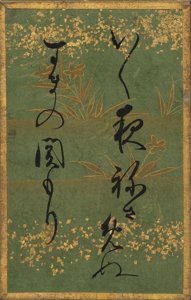 いく夜ねさめぬ
すまの関もり